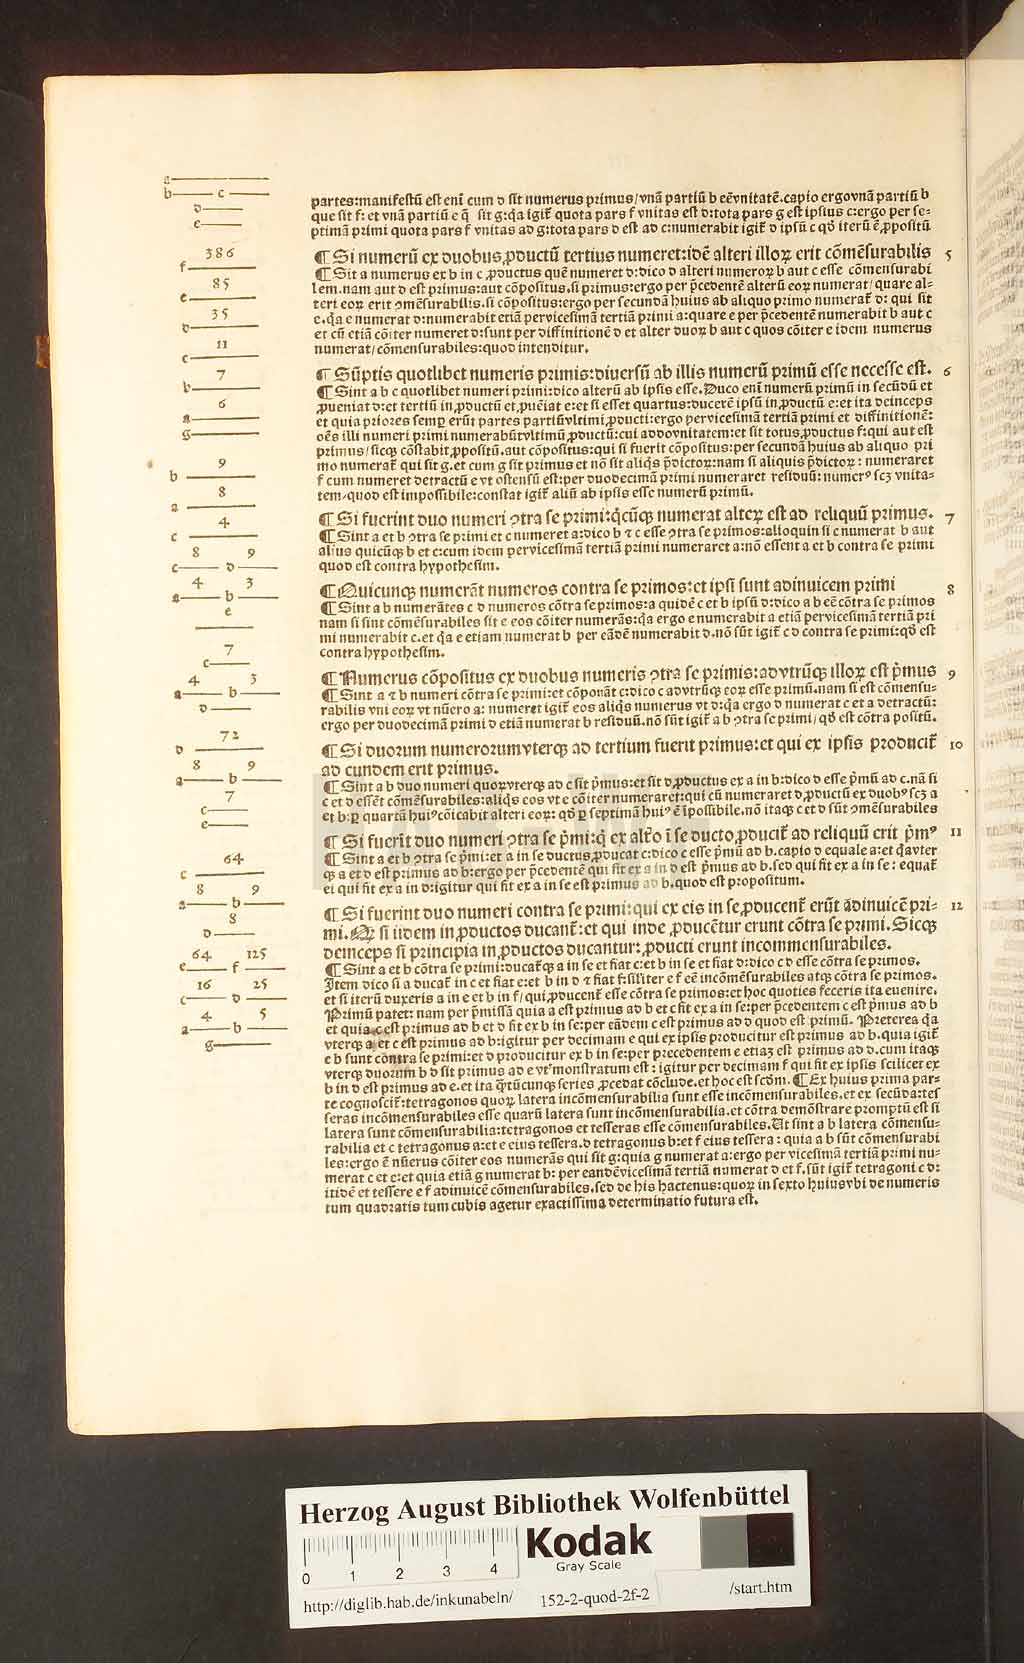 a
b c
d
e
partes:manifestũ est enĩ cum d sit numerus primus/vnã partiũ b eẽvnitatẽ.capio ergovnã partiũ b
que sit f: et vnã partiũ e q̃ sit g:q̃a igit̃ quota pars f vnitas est d:tota pars g est ipsius c:ergo per se-
ptimã primi quota pars f vnitas ad g:tota pars d est ad c:numerabit igit̃ d ipsũ c qd̃ iterũ ẽ ꝓpositũ
386
f
85
e
35
d
11
c
7
b
6
a
g
¶ Si numerũ ex duobus ꝓductũ tertius numeret:idẽ alteri illoꝝ erit cõmẽsurabilis 5
¶ Sit a numerus ex b in c ꝓductus quẽ numeret d:dico d alteri numeroꝝ b aut c esse cõmensurabi
lem.nam aut d est primus:aut cõpositus.si primus:ergo per p̃cedentẽ alterũ eoꝝ numerat/quare al-
teri eoꝝ erit ꝯmẽsurabilis.si cõpositus:ergo per secundã huius ab aliquo primo numerat̃ d: qui sit
e.q̃a e numerat d:numerabit etiã pervicesimã tertiã primi a:quare e per p̃cedentẽ numerabit b aut c
et cũ etiã cõiter numeret d:sunt per diffinitionẽ d et alter duoꝝ b aut c quos cõiter e idem numerus
numerat/cõmensurabiles:quod intenditur.
¶ Sũptis quotlibet numeris primis:diuersũ ab illis numerũ primũ esse necesse est. 6
¶ Sint a b c quotlibet numeri primi:dico alterũ ab ipsis esse.Duco enĩ numerũ primũ in secũdũ et
ꝓueniat d:et tertiũ in ꝓductũ et ꝓuẽiat e:et si esset quartus:ducerẽ ipsũ in ꝓductũ e:et ita deinceps
et quia priores semꝑ erũt partes partiũvltimi ꝓducti:ergo pervicesimã tertiã primi et diffinitionẽ:
oẽs illi numeri primi numerabũtvltimũ ꝓductũ:cui addovnitatem:et sit totus ꝓductus f:qui aut est
primus/sicqꝫ cõstabit ꝓpositũ.aut cõpositus:qui si fuerit cõpositus:per secundã huius ab aliquo pri
mo numerat̃ qui sit g.et cum g sit primus et nõ sit aliq̃s p̃dictoꝝ:nam si aliquis p̃dictoꝝ: numeraret
f cum numeret detractũ e vt ostensũ est:per duodecimã primi numeraret residuũ: numerꝰ scꝫ vnita-
tem/quod est impossibile:constat igit̃ aliũ ab ipsis esse numerũ primũ.
9
b
8
a
¶ Si fuerint duo numeri ꝯtra se primi:q̃cũqꝫ numerat alteꝝ est ad reliquũ primus. 7
¶ Sint a et b ꝯtra se primi et c numeret a:dico b ⁊ c esse ꝯtra se primos:alioquin si c numerat b aut
alius quicũqꝫ b et c:cum idem pervicesimã tertiã primi numeraret a:nõ essent a et b contra se primi
quod est contra hypothesim.
4
c
8 9
c d
4 3
a b
e
¶ Quicunqꝫ numerãt numeros contra se primos:et ipsi sunt adinuicem primi 8
¶ Sint a b numerãtes c d numeros cõtra se primos:a quidẽ c et b ipsũ d:dico a b eẽ cõtra se primos
nam si sint cõmẽsurabiles sit e eos cõiter numerãs:q̃a ergo e numerabit a etiã pervicesimã tertiã pri
mi numerabit c.et q̃a e etiam numerat b per eãdẽ numerabit d.nõ sũt igit̃ c d contra se primi:qd̃ est
contra hypothesim.
7
c
4 3
a b
d
¶ Numerus cõpositus ex duobus numeris ꝯtra se primis:advtrũqꝫ illoꝝ est p̃mus 9
¶ Sint a ⁊ b numeri cõtra se primi:et cõponãt c:dico c advtrũqꝫ eoꝝ esse primũ.nam si est cõmensu-
rabilis vni eoꝝ vt nũero a: numeret igit̃ eos aliq̃s numerus vt d:q̃a ergo d numerat c et a detractũ:
ergo per duodecimã primi d etiã numerat b residuũ.nõ sũt igit̃ a b ꝯtra se primi/qd̃ est cõtra positũ.
72
d
8 9
a b
7
c
e
¶ Si duorum numerorumvterqꝫ ad tertium fuerit primus:et qui ex ipsis producit̃ 10
ad eundem erit primus.
¶ Sint a b duo numeri quoꝝvterqꝫ ad c sit p̃mus:et sit d ꝓductus ex a in b:dico d esse p̃mũ ad c.nã si
c et d essẽt cõmẽsurabiles:aliq̃s eos vt e cõiter numeraret:qui cũ numeraret d ꝓductũ ex duobꝰ scꝫ a
et b:ꝑ quartã huiꝰ cõicabit alteri eoꝝ: qd̃ ꝑ septimã huiꝰ ẽ ĩpossibile.nõ itaqꝫ c et d sũt ꝯmẽsurabiles
64
c
8 9
a b
8
d
¶ Si fuerit duo numeri ꝯtra se p̃mi:q̃ ex alt̃o ĩ se ducto ꝓducit̃ ad reliquũ erit p̃mꝰ 11
¶ Sint a et b ꝯtra se p̃mi:et a in se ductus ꝓducat c:dico c esse p̃mũ ad b.capio d equale a:et q̃avter
qꝫ a et d est primus ad b:ergo per p̃cedentẽ qui fit ex a in d est p̃mus ad b.sed qui fit ex a in se: equat̃
ei qui fit ex a in d:igitur qui fit ex a in se est primus ad b.quod est propositum.
64 125
e f
16 25
c d
4 5
a b
g
¶ Si fuerint duo numeri contra se primi:qui ex eis in se ꝓducent̃ erũt adinuicẽ pri- 12
mi.Qꝫ si iidem in ꝓductos ducant̃:et qui inde ꝓducẽtur erunt cõtra se primi.Sicqꝫ
deinceps si principia in ꝓductos ducantur:ꝓducti erunt incommensurabiles.
¶ Sint a et b cõtra se primi:ducat̃qꝫ a in se et fiat c:et b in se et fiat d:dico c d esse cõtra se primos.
Item dico si a ducat̃ in c et fiat e:et b in d ⁊ fiat f:sil̃iter e f eẽ incõmẽsurabiles atqꝫ cõtra se primos.
et si iterũ duxeris a in e et b in f/qui ꝓducent̃ esse cõtra se primos:et hoc quoties feceris ita euenire.
Primũ patet: nam per p̃missã quia a est primus ad b et c fit ex a in se:per p̃cedentem c est p̃mus ad b
et quia c est primus ad b et d fit ex b in se:per eãdem c est primus ad d quod est primũ. Preterea q̃a
vterqꝫ a et c est primus ad b:igitur per decimam e qui ex ipsis producitur est primus ad b.quia igit̃
e b sunt contra se primi:et d producitur ex b in se:per precedentem e etiaꝫ est primus ad d.cum itaqꝫ
vterqꝫ duorum b d sit primus ad e vt monstratum est: igitur per decimam f qui fit ex ipsis scilicet ex
b in d est primus ad e.et ita q̃tũcunqꝫ series ꝓcedat cõclude.et hoc est scdm̃.¶ Ex huius prima par-
te cognoscit̃:tetragonos quoꝝ latera incõmensurabilia sunt esse incõmensurabiles.et ex secũda:tes
seras incõmensurabiles esse quarũ latera sunt incõmensurabilia.et cõtra demõstrare promptũ est si
latera sunt cõmensurabilia:tetragonos et tesseras esse cõmensurabiles.Ut sint a b latera cõmensu-
rabilia et c tetragonus a:et e eius tessera.d tetragonus b:et f eius tessera: quia a b sũt cõmensurabi
les:ergo ẽ nũerus cõiter eos numerãs qui sit g:quia g numerat a:ergo per vicesimã tertiã primi nu-
merat c et e:et quia etiã g numerat b: per eandẽvicesimã tertiã numerat d et f.sũt igit̃ tetragoni c d:
itidẽ et tessere e f adinuicẽ cõmensurabiles.sed de his hactenus:quoꝝ in sexto huiusvbi de numeris
tum quadratis tum cubis agetur exactissima determinatio futura est.
Herzog August Bibliothek Wolfenbüttel
Kodak
Gray Scale
0 1 2 3 4
http://diglib.hab.de/inkunabeln/ 152-2-quod-2f-2 /start.htm